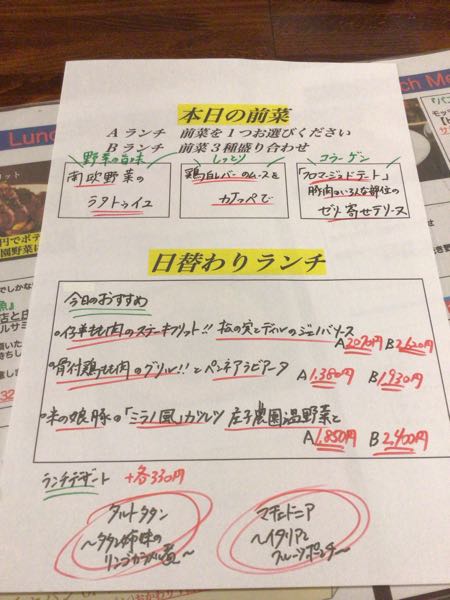 本日の前菜
Aランチ 前菜を1つお選びください
Bランチ 前菜3種盛り合わせ
野菜の旨味
南欧野菜の
ラタトゥイユ
しっとり
鶏白レバーのムースを
カナッペで
コラーゲン
「フロマージュドテート」
豚肉のいろんな部位の
ゼリー寄せテリーヌ
日替わりランチ
今日のおすすめ
・仔羊モモ肉のステーキフリット!! 松の実とディルのジェノバソース
A2070円 B2,620円
・骨付鶏モモ肉のグリル!!とペンネアラビアータ
A1,380円 B1,930円
・米の娘豚の「ミラノ風」カツレツ 庄子農園温野菜と
A1,850円 B2,400円
ランチデザート +各330円
タルトタタン
〜タタン姉妹の
リンゴカラメル煮〜
マチェドニア
〜イタリアン
フルーツポンチ〜
Lunch